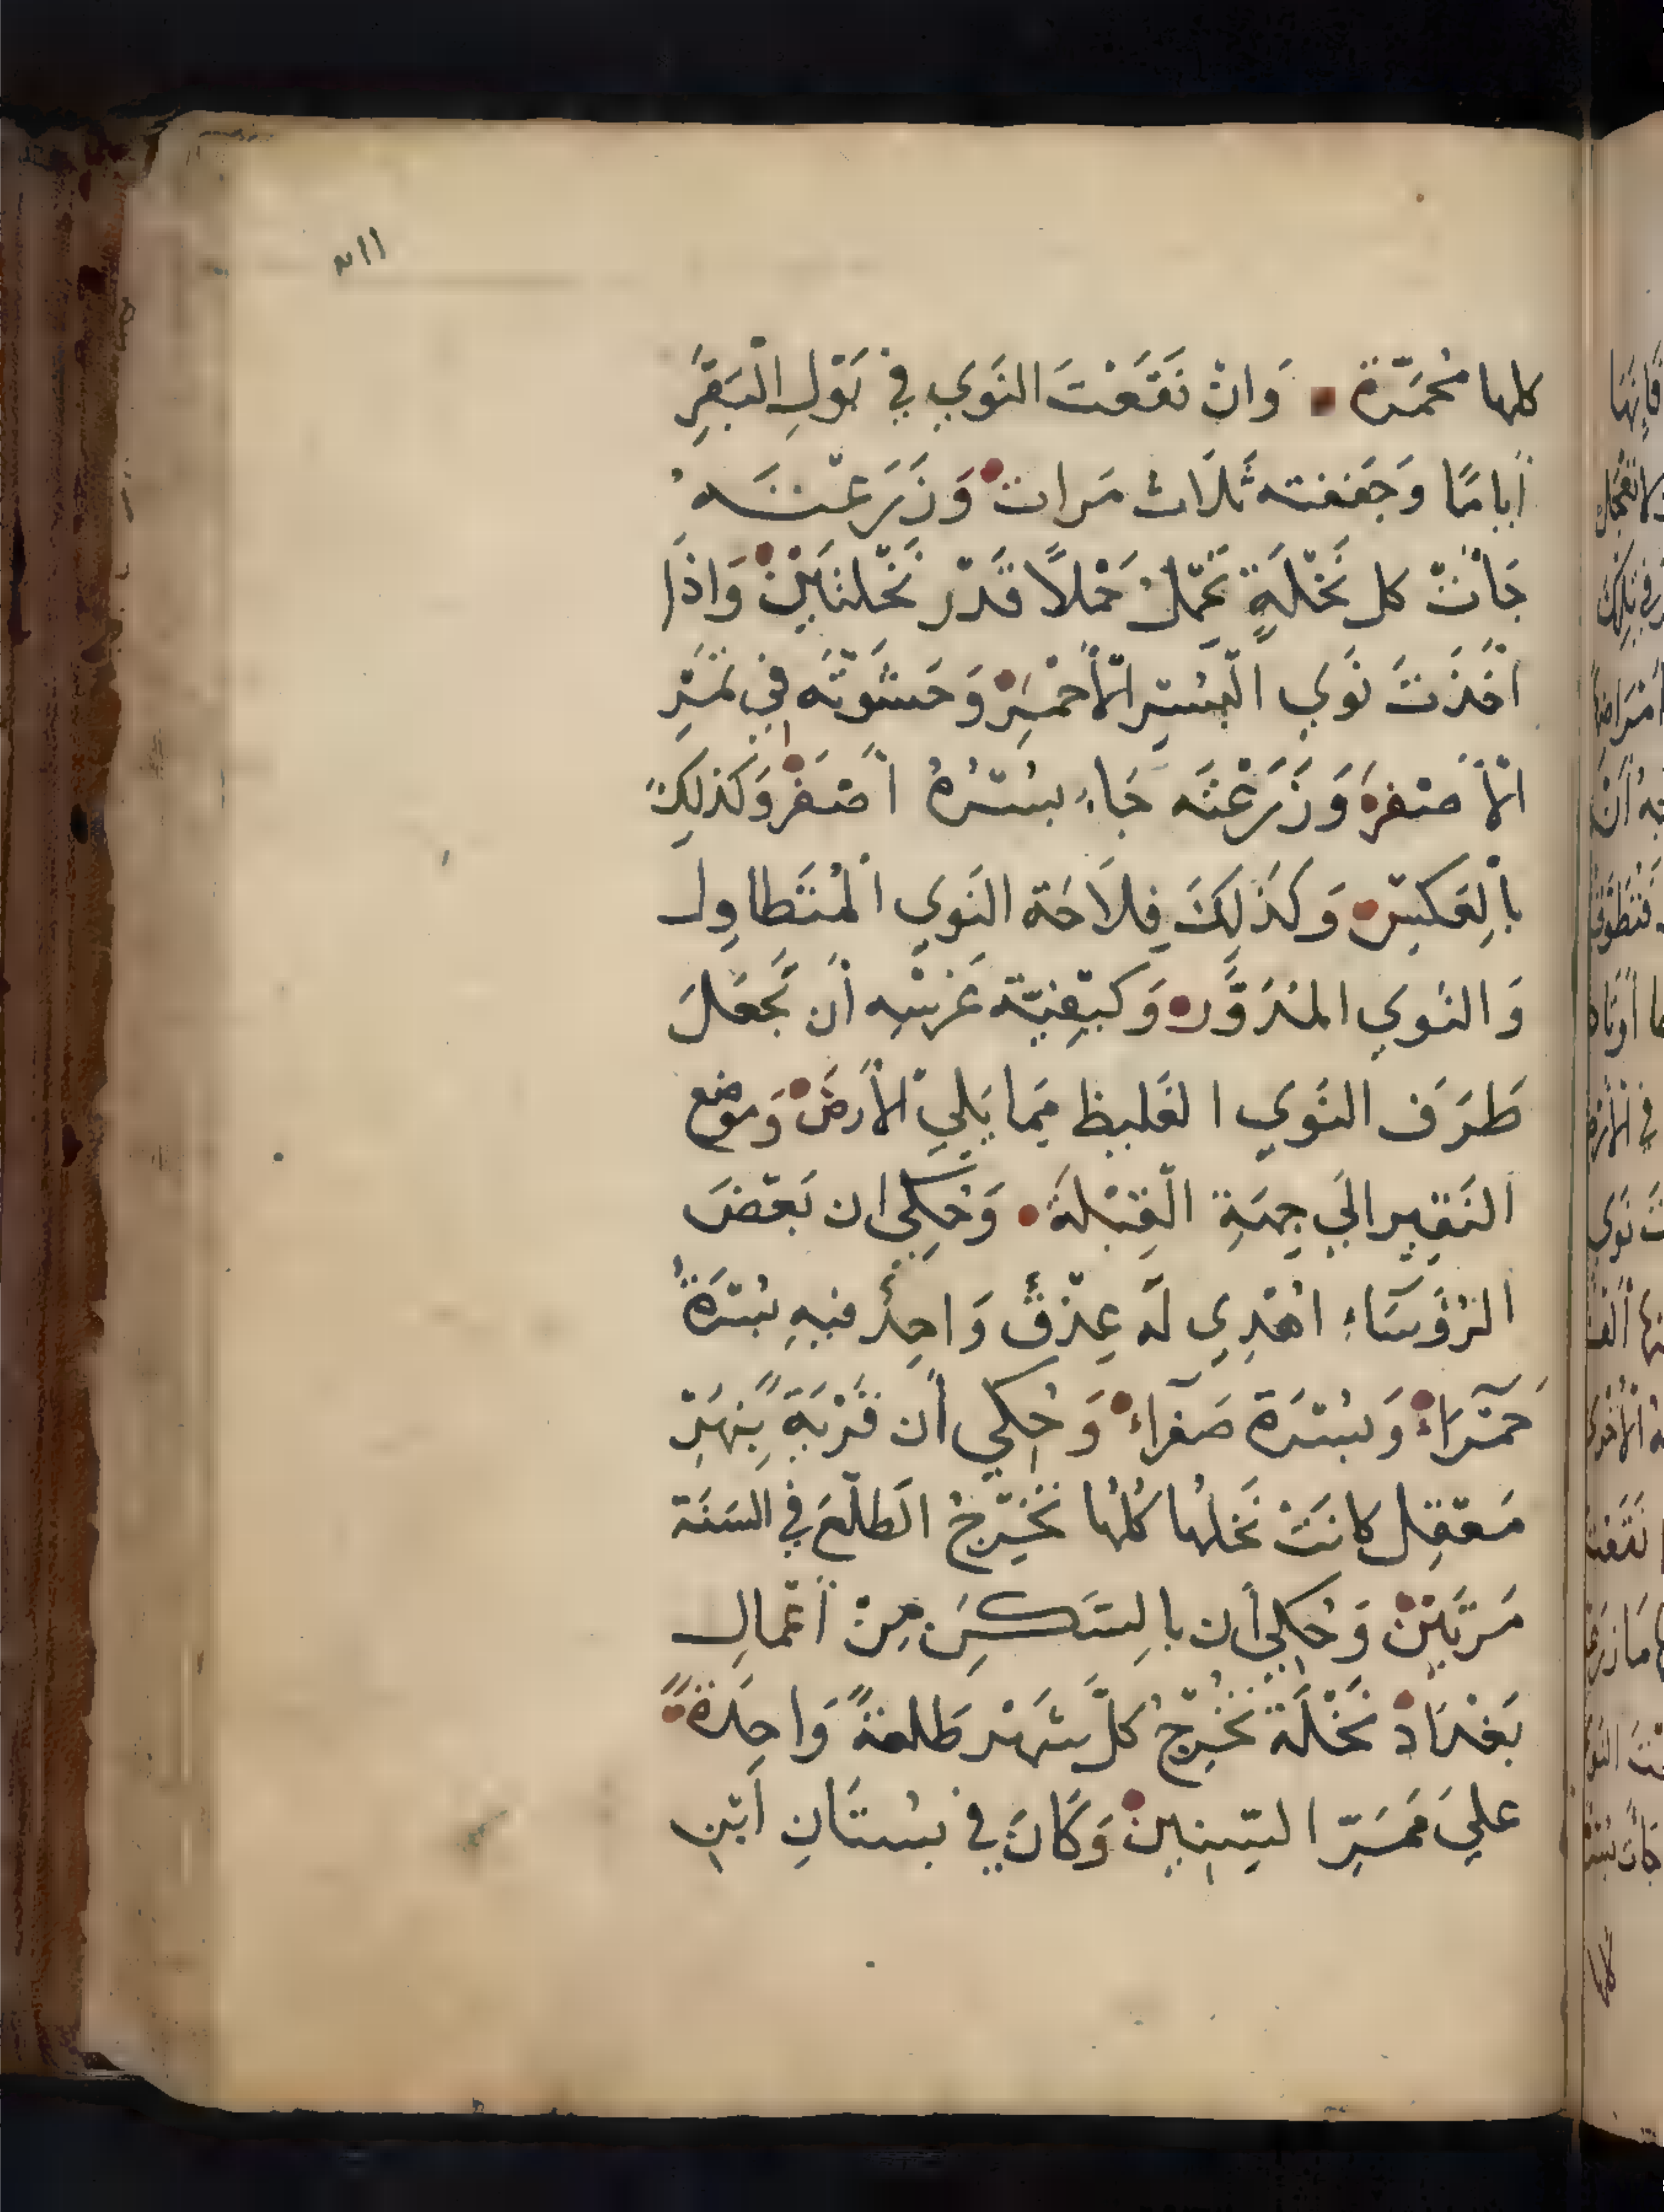 كلها مُحمَرّة وَان نَقَعْتَ النَوَي في بَوْلِ الْبَقَرِ
أياما وَجَففته ثَلَاث مَرات وَزَرَعْتَه
جَأتْ كل نَخْلَةٍ تَحْمل حَمْلاً قَدْر نَخْلتَيْن وَاذَا
اخَذتَ نَوَي الْبُسْرِ الْأحْمَرِ وَحَشَوتَه في تَمْرِ
الْأصْفر وَزَرَعْتَه جَاء بُسْرُهُ أصْفَر وَكَذلِكَ
باِلعَكْسِ وَكَذَلِكَ فِلاَحَة النَوَي اَلْمُتَطاوِل
وَالنَوَي المُدَوَّر وَكَيْفِيّة غَرْسِه أن تَجْعَلَ
طَرَف النَوَي الغَليظ مِمَا يَلِي الأرض وَموضع
النَقِير الَي جِهَةِ الْقِبْلَة وَحُكِي ان بَعْضَ
الرُؤسَاءِ اهْدِي لَه عِذْقٌ وَاحِدٌ فيهِ بُسْرَةٌ
حَمْرَاء وَبُسْرَة صَفْراء وَحُكِي أن قَرْيَةً بِنَهْرِ
مَعْقِل كانَتْ نَخلها كُلها تخْرِجُ الطَلْعَ في السَنَة
مَرتَيْن وَحُكِي أن باِلسَكَن مِنْ أعْمالِ
بَغْدَاد نَخْلَة تُخْرِجُ كلَّ شَهْر طَلعةً وَاحِدَةً
عليَ مَمَرّ السِنِين وَكَانَ في بُسْتَانِ اَبْنِ